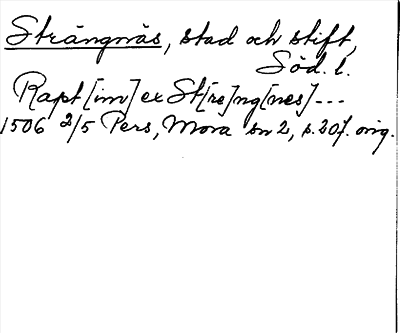 Strängnäs, stad och stift,
Söd. l.
Rapt[im] ex St[re]ng[nes] ---
1506 2/5 Pers, Mora sn 2, s. 207. orig.